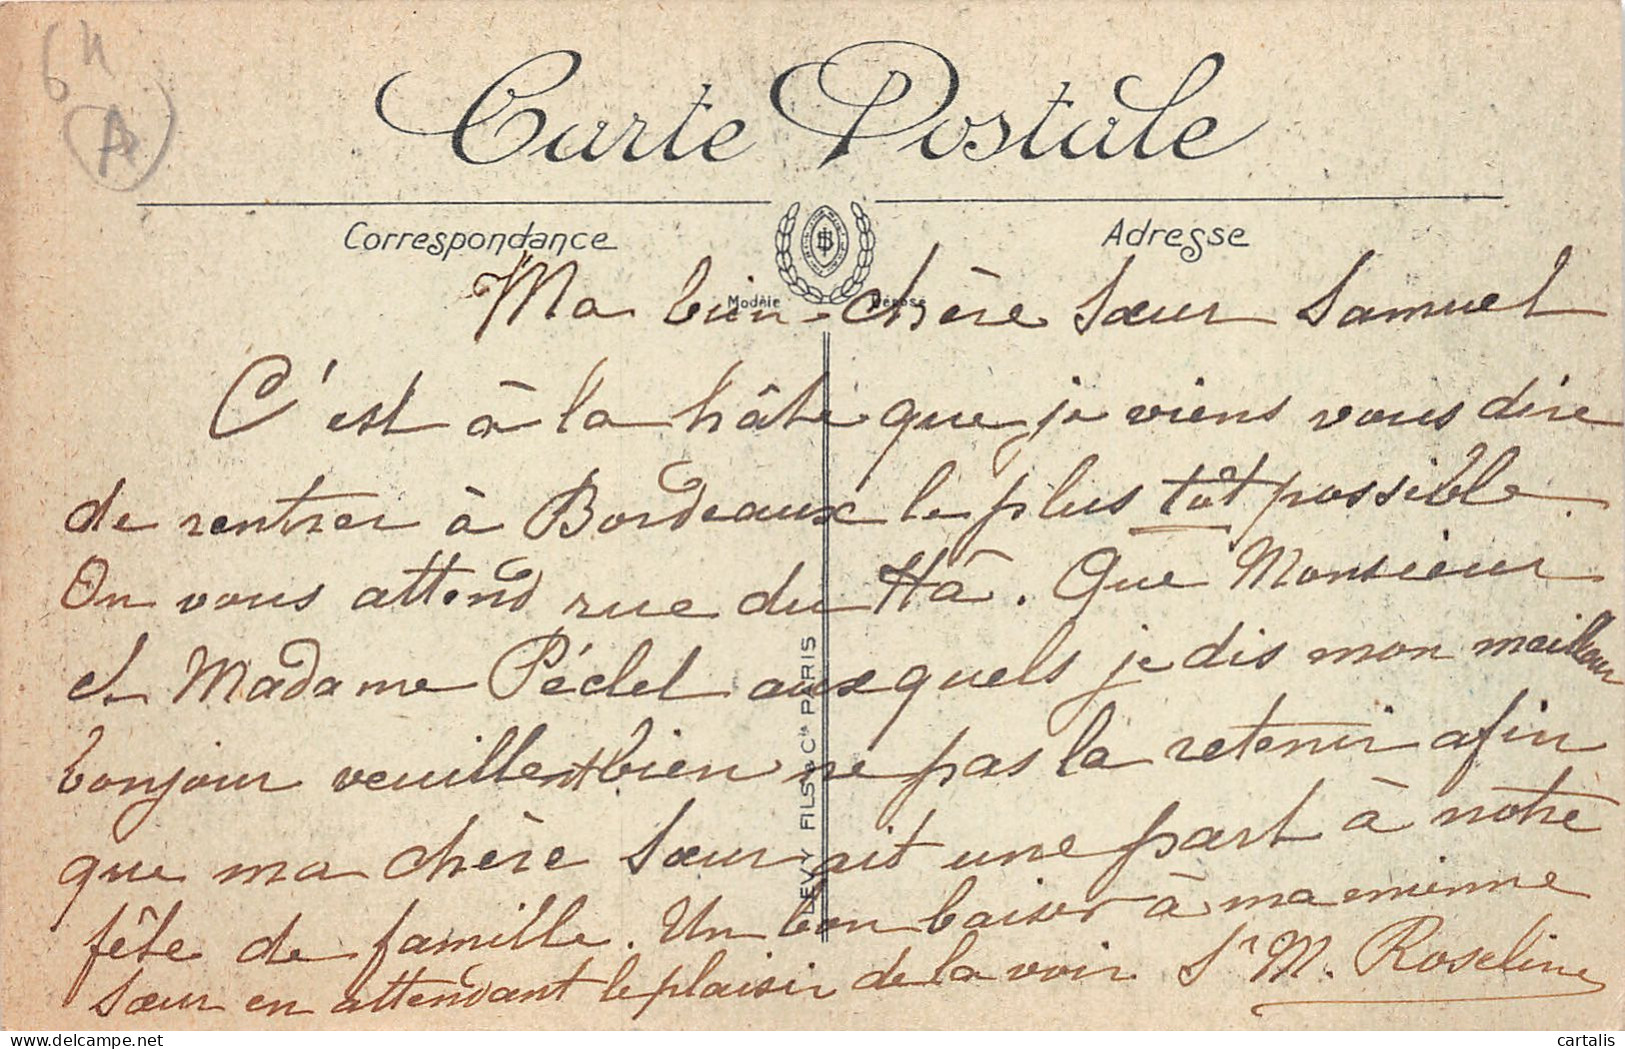 64
A
Carte Postale
Correspondance
Adresse
Modèle Déposé
Ma bien chère Sœur Samuel
C'est à la hâte que je viens vous dire
de rentrer à Bordeaux le plus tôt possible.
On vous attend rue du Hâ. Que Monsieur
et Madame Péclet auxquels je dis mon meilleur
bonjour veuillent bien ne pas la retenir afin
que ma chère Sœur ait une part à notre
fête de famille. Un bon baiser à ma mienne
Sœur en attendant le plaisir de la voir Sr M. Roseline
LEVY FILS & Cie PARIS
delcampe.net
cartalis